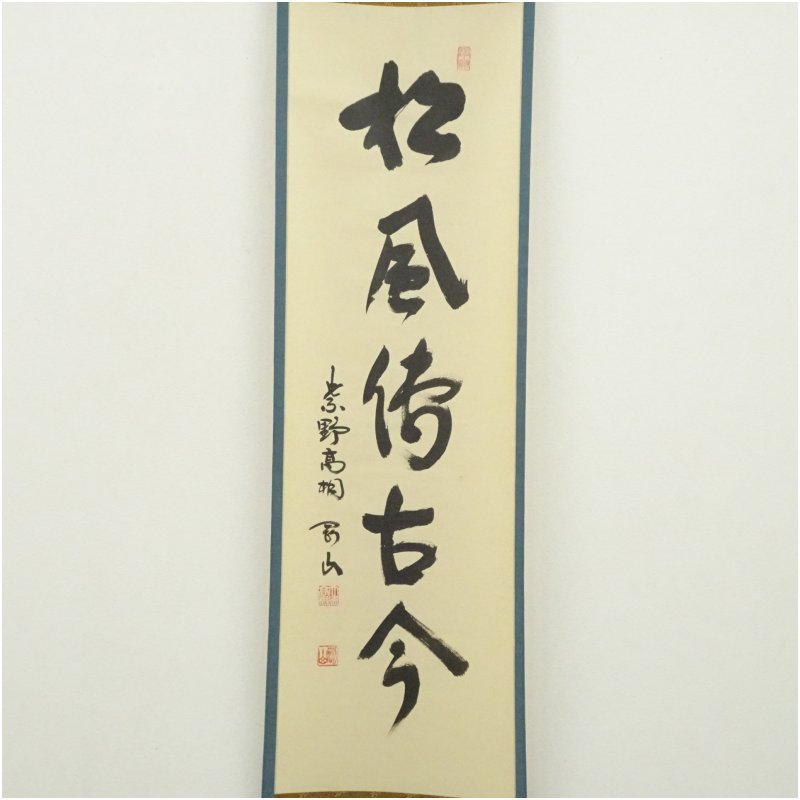 松風傳古今
紫野高桐 剛山